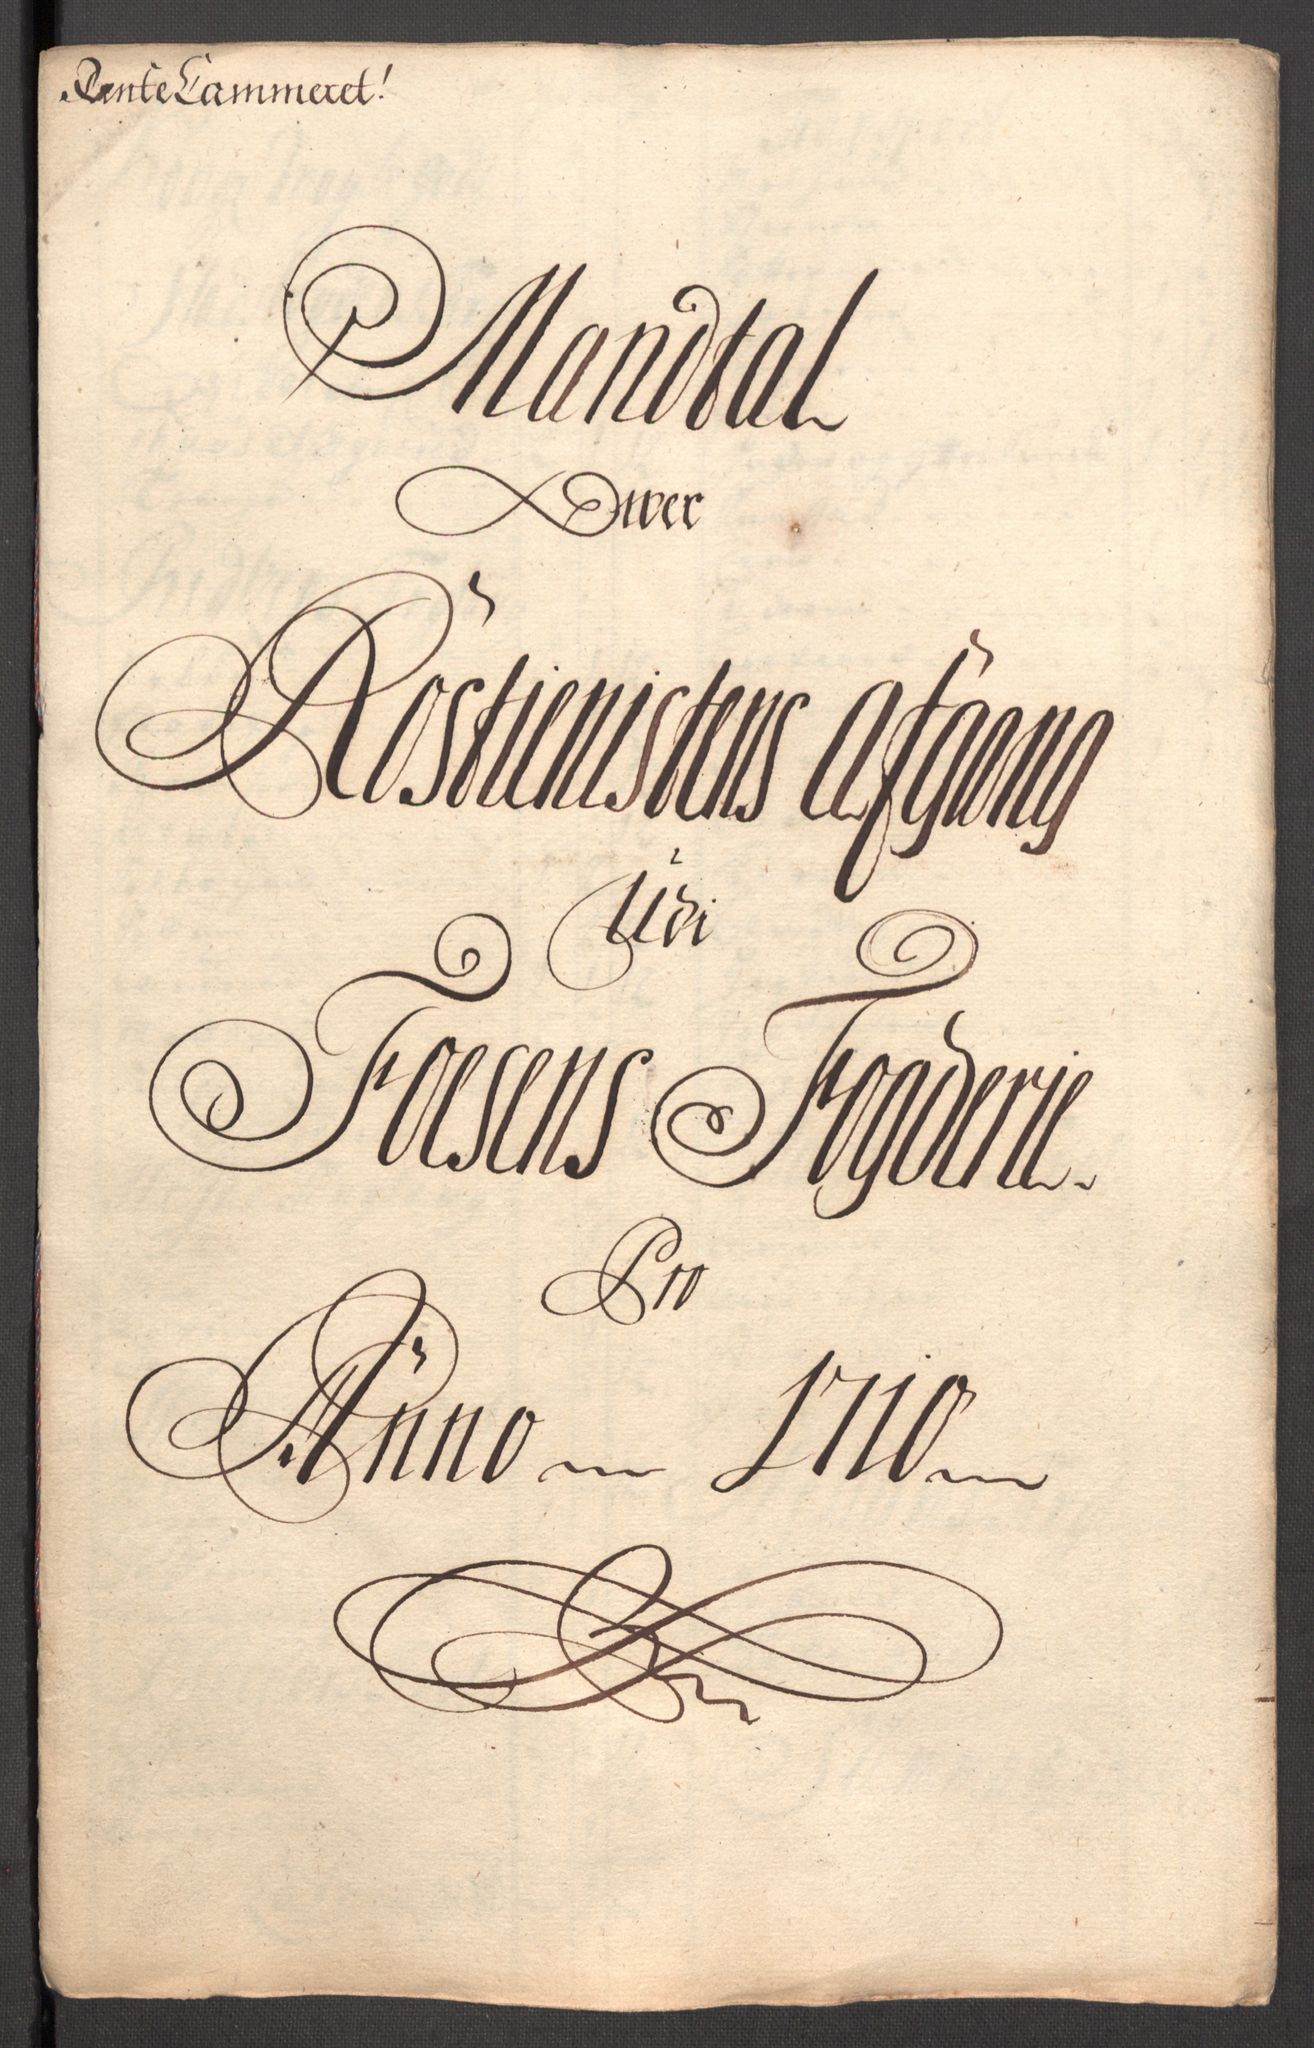 RenteCammeret!
Mandtal
Ower
Rostienistens Afgang
Udi
Foesens Fogderie.
Pro
Anno 1710